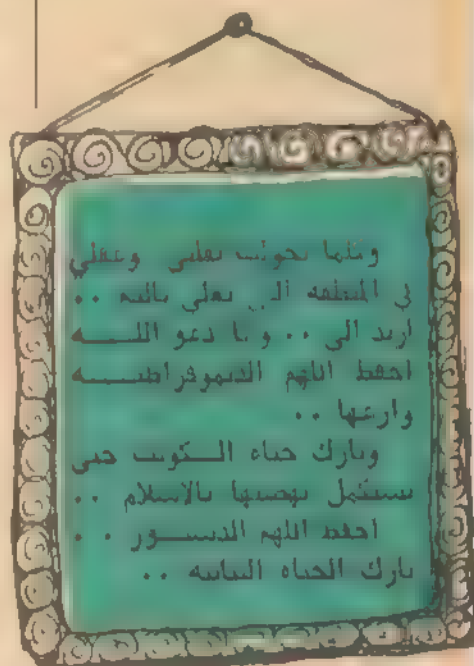 وكلما تجولت بقلبي وعقلي
في المنطقه التي
اريد الى .. و ندعو اللـــه
احفظ اللهم الديموقراطيـــه
وارعها ..
وبارك حياه الـكويت حتى
تستكمل نهضتها بالاسلام ..
احفظ اللهم الدستـــور ..
بارك الحياه النيابيه ..